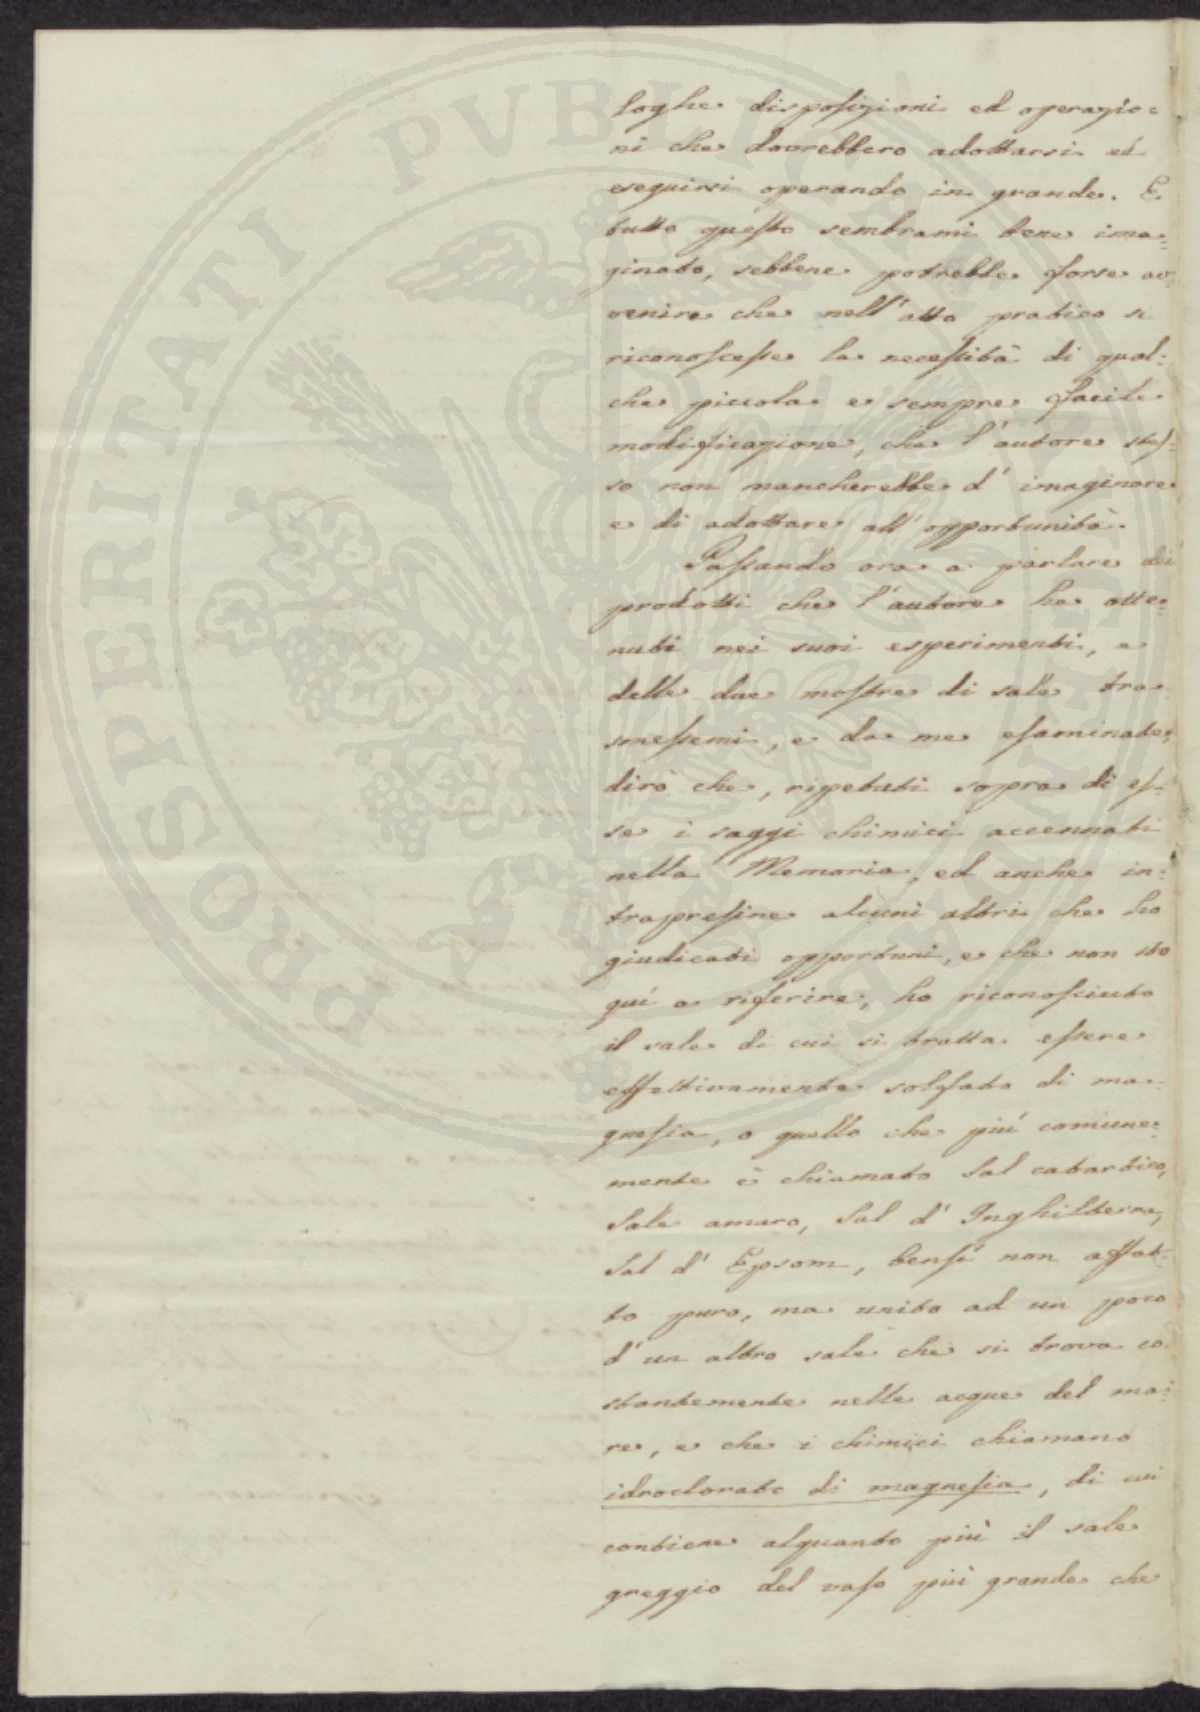 PROSPERITATI PVBLICAE
loghe disposizioni ed operazio=
ni che dovrebbero adottarsi ed
eseguirsi operando in grande. E
tutto questo sembrami bene ima=
ginato, sebbene potrebbe forse av=
venire che nell'atto pratico si
riconoscesse la necessità di qual=
che piccola e sempre facile
modificazione, che l'autore stes=
so non mancherebbe d'imaginare
e di adottare all'opportunità.
Passando ora a parlare dei
prodotti che l'autore ha otte=
nuti nei suoi esperimenti, e
delle due mostre di sale tra=
smessemi, e da me esaminate,
dirò che, ripetuti sopra di es=
se i saggi chimici accennati
nella Memoria, ed anche in=
trapresine alcuni altri che ho
giudicati opportuni, e che non sto
quì a riferire, ho riconosciuto
il sale di cui si tratta essere
effettivamente solfato di ma=
gnesia, o quello che più comune=
mente è chiamato Sal catartico,
Sale amaro, Sal d'Inghilterra,
Sal d'Epsom, bensì non affat=
to puro, ma unito ad un poco
d'un altro sale che si trova co
stantemente nelle acque del ma=
re, e che i chimici chiamano
idroclorato di magnesia, di cui
contiene alquanto più il sale
greggio del vaso più grande che